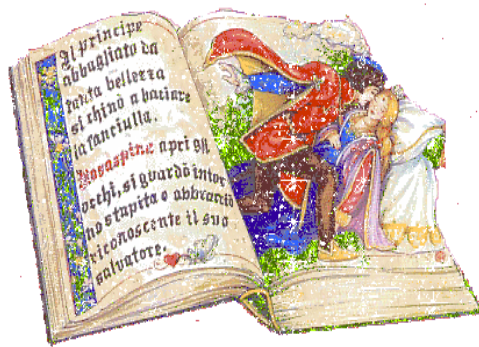 Il principe
abbagliato da
tanta bellezza
si chinò a baciare
la fanciulla.
Rosaspina aprì gli
occhi, si guardò intor
no stupita e abbracciò
riconoscente il suo
salvatore.